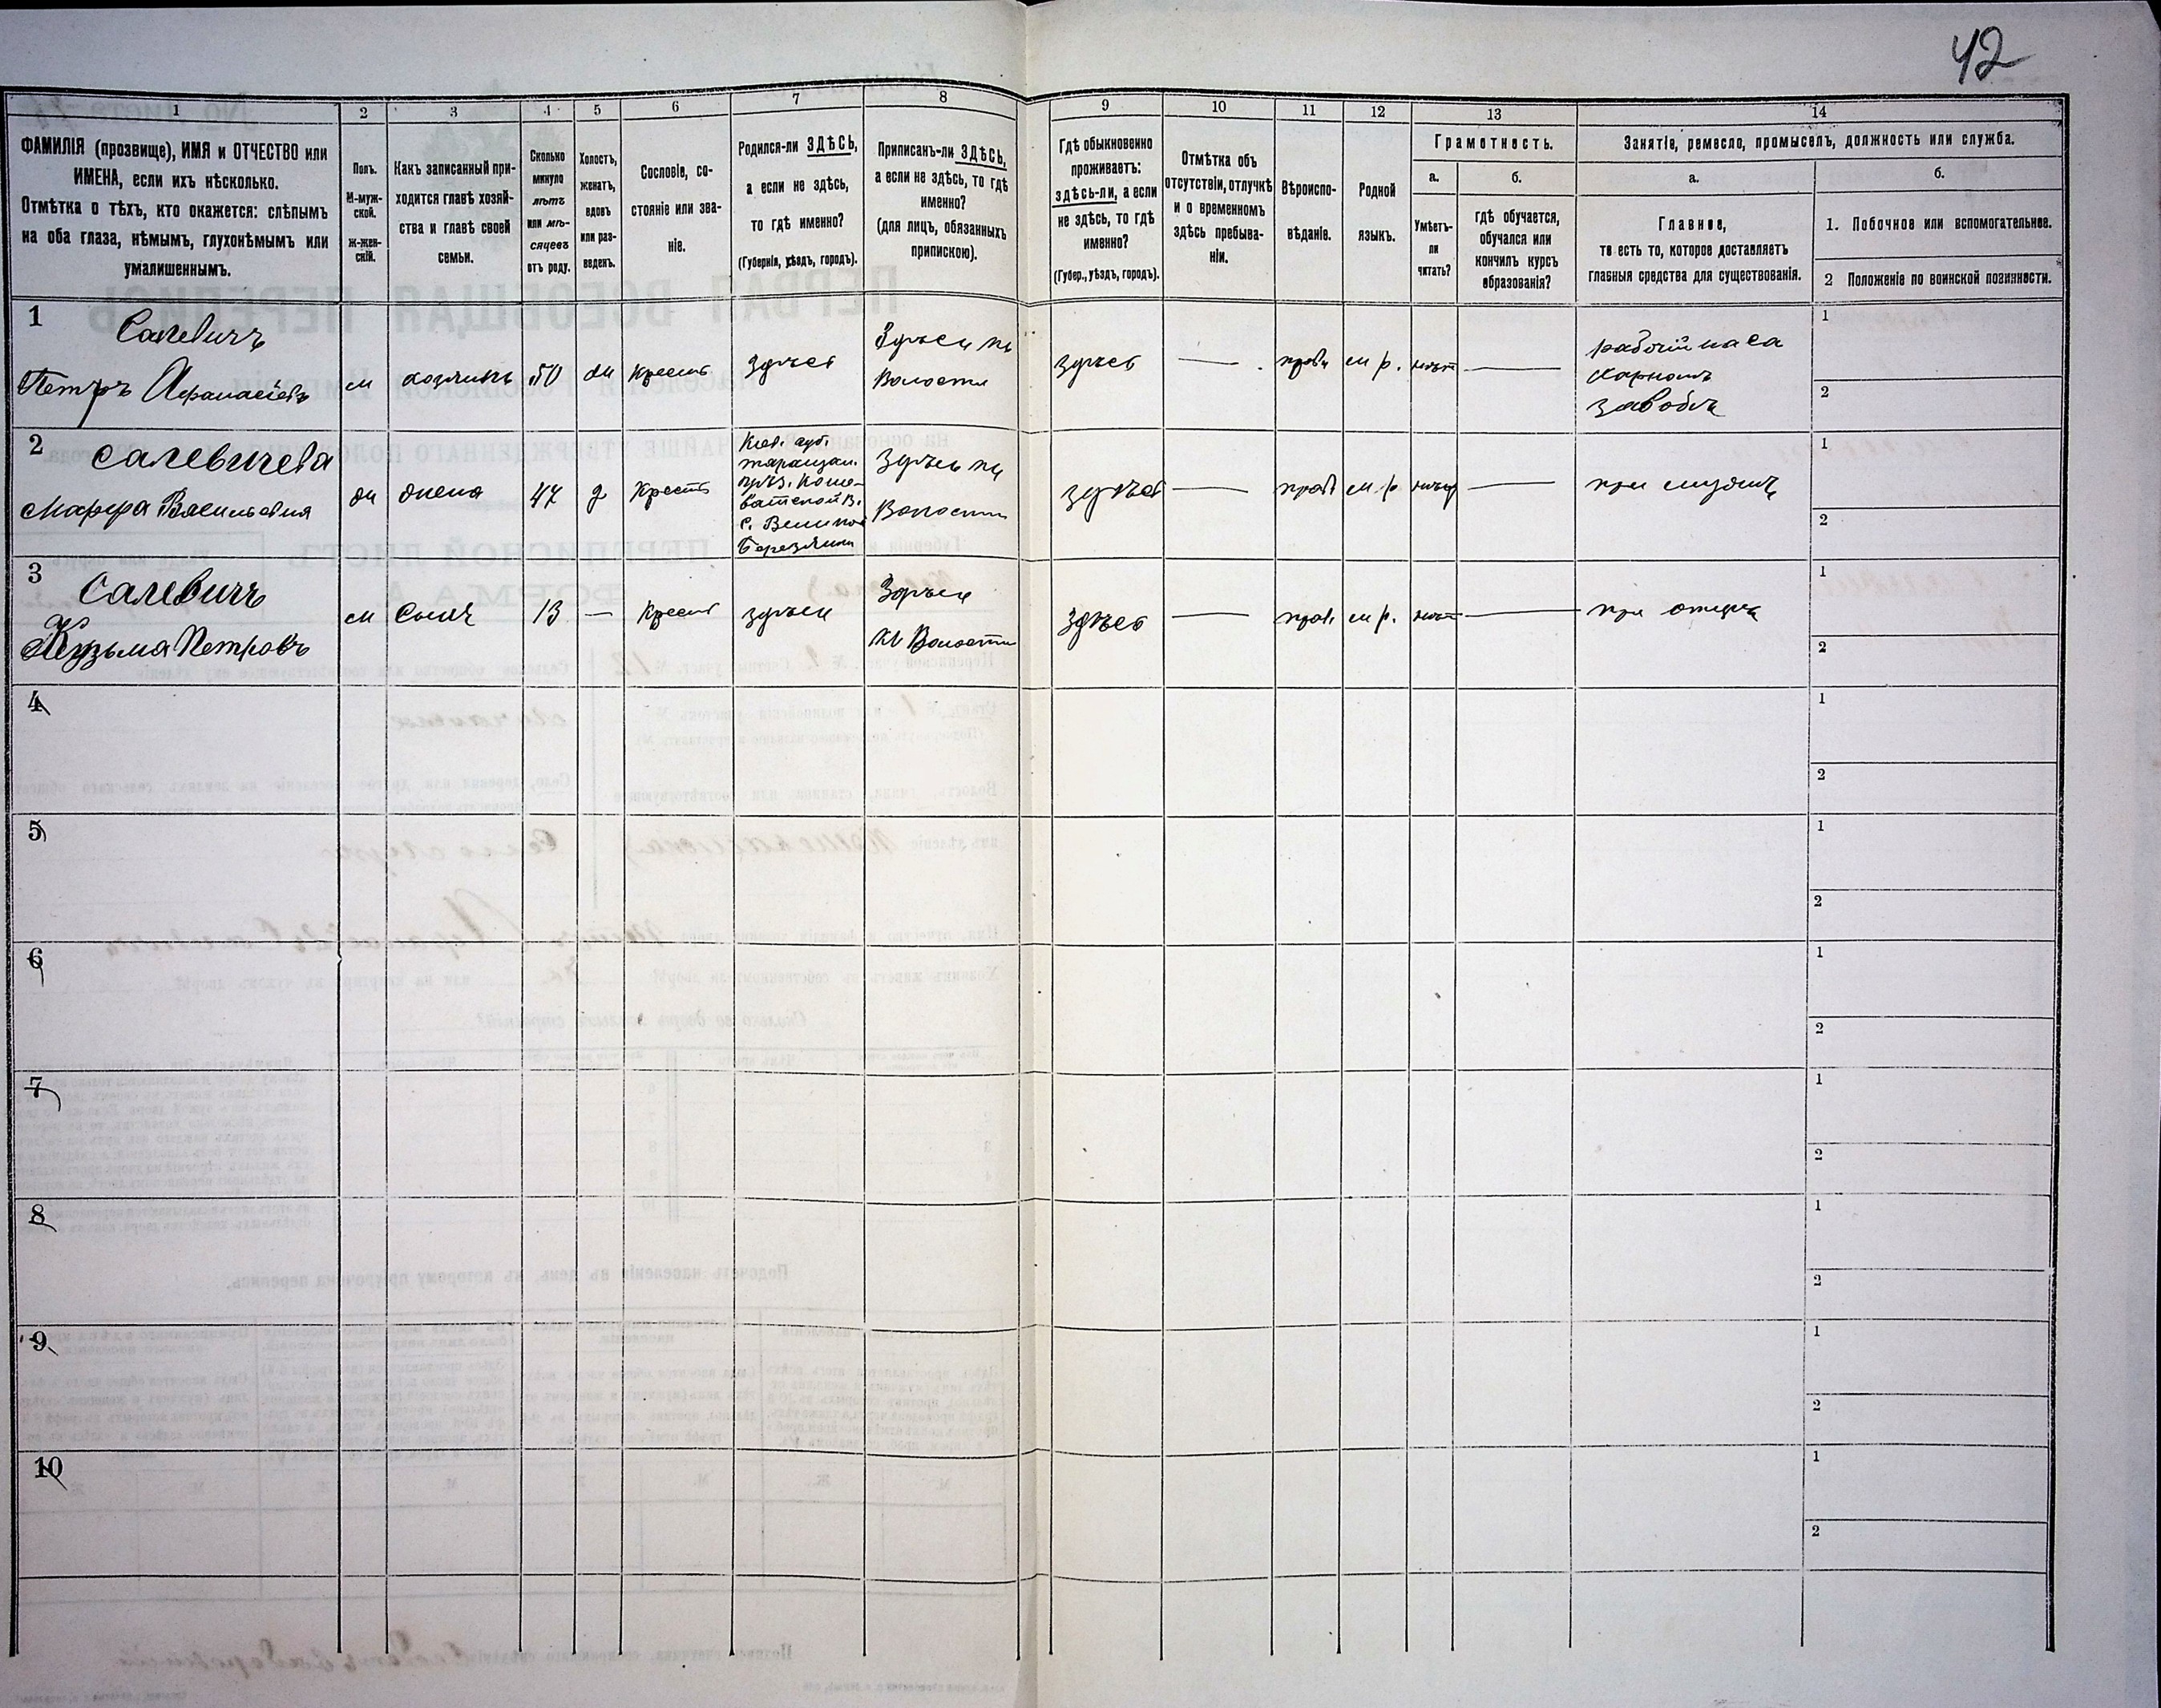 42
1 2 3 4 5 6 7 8 9 10 11 12 13 14
ФАМИЛІЯ (прозвище), ИМЯ и ОТЧЕСТВО или
ИМЕНА, если ихъ нѣсколько.
Отмѣтка о тѣхъ, кто окажется: слѣпымъ
на оба глаза, нѣмымъ, глухонѣмымъ или
умалишеннымъ.
Полъ.
М-муж-
ской.
ж-жен-
скій.
Какъ записанный при-
ходится главѣ хозяй-
ства и главѣ своей
семьи.
Сколько
минуло
лѣтъ
или мѣ-
сяцевъ
отъ роду.
Холостъ,
женатъ,
вдовъ
или раз-
веденъ.
Сословіе, со-
стояніе или зва-
ніе.
Родился-ли ЗДѢСЬ,
а если не здѣсь,
то гдѣ именно?
(Губернія, уѣздъ, городъ).
Приписанъ-ли ЗДѢСЬ,
а если не здѣсь, то гдѣ
именно?
(для лицъ, обязанныхъ
припискою).
Гдѣ обыкновенно
проживаетъ:
здѣсь-ли, а если
не здѣсь, то гдѣ
именно?
(Губер., уѣздъ, городъ).
Отмѣтка объ
отсутствіи, отлучкѣ
и о временномъ
здѣсь пребыва-
ніи.
Вѣроиспо-
вѣданіе.
Родной
языкъ.
Грамотность.
а.
Умѣетъ-
ли
читать?
б.
гдѣ обучается,
обучался или
кончилъ курсъ
образованія?
Занятіе, ремесло, промыселъ, должность или служба.
а.
Главное,
то есть то, которое доставляетъ
главныя средства для существованія.
б.
1. Побочное или вспомогательное.
2 Положеніе по воинской повинности.
1
Салевичъ
Петръ Афанасіевъ
м
хозяинъ
50
жи
крест
здѣсь
Здѣсь
Волости
здѣсь
—
прав
м р.
нѣтъ
—
рабочій на са
харномъ
заводѣ
1
2
2
Салевичева
Марфа Васильевна
жи
жена
47
Крест
Кіев. губ.
таращан.
Коше-
ватской В.
с. Велико
Березянки
Здѣсь
Волости
здѣсь
—
прав
м. р.
нѣтъ
—
при мужѣ
1
2
3
Салевичъ
Кузьма Петровъ
м
Сынъ
13
—
Крест
здѣсь
Здѣсь
Волости
Здѣсь
—
прав.
м р.
нѣтъ
—
при отцѣ
1
2
4
1
2
5
1
2
6
1
2
7
1
2
8
1
2
9
1
2
10
1
2